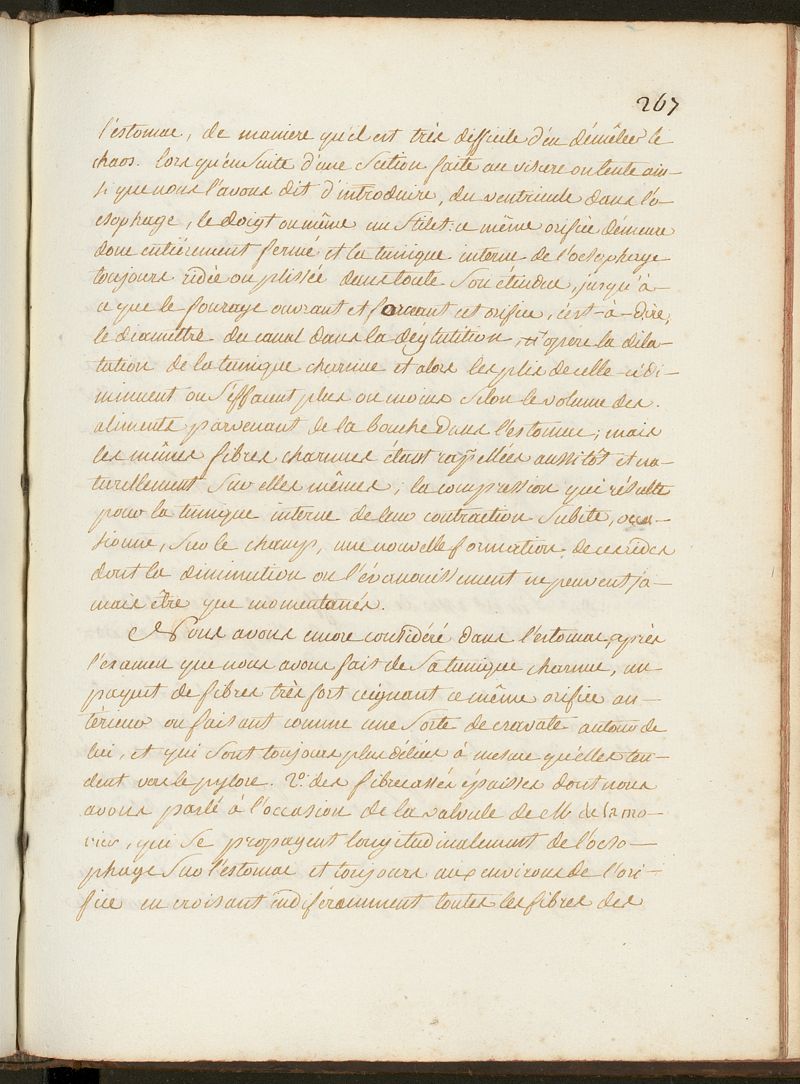 267
l'estomac, de maniere qu'il est très difficile d'en démêler le
chaos. lors qu'en Suite d'une Section faite au viscere on tente ain-
si que nous l'avons dit d'introduire, du ventricule dans l'o-
esophage, le doigt ou même un Stilet: ce même orifice démeure
donc entiérement fermé et la tunique interne de l'oesophage
toujours ridée ou plissée dans toute Son étendue, jusqu'à-
ce que le fourage ouvrant et forceant cet orifice, c'est-à-dire,
le diamettre du canal dans la déglutition, opere la dila-
tation de la tunique charnue et alors les plis de celle-ci di-
minuent ou S'éffacent plus ou moins Selon le volume des
aliments parvenant de la bouche dans l'estomac; mais
les mêmes fibres charnues étant rappellées aussitôt et na-
turellement Sur elles mêmes, la compression qui résulte
pour la tunique interne de leur contraction Subite, occa-
sionne, Sur le champ, une nouvelle formation de ces rides
dont la diminution ou l'évanouissement ne peuvent ja-
mais être que momentanés.
Nous avons encore considéré dans l'estomac, après
l'éxamen que nous avons fait de Sa tunique charnue, un
paquet de fibres très fort ceignant ce même orifice an-
térieur ou faisant comme une Sorte de cravate autour de
lui, et qui Sont toujours plus déliées à mesure qu'elles ten-
dent vers le pylore. 2º. des fibres assés épaisses dont nous
avons parlé à l'occasion de la valvule de M. de lamo-
rier, qui Se propagent longitudinalement de l'oeso-
phage Sur l'estomac et toujours aux environs de l'ori-
fice en croisant indiféremment toutes les fibres des